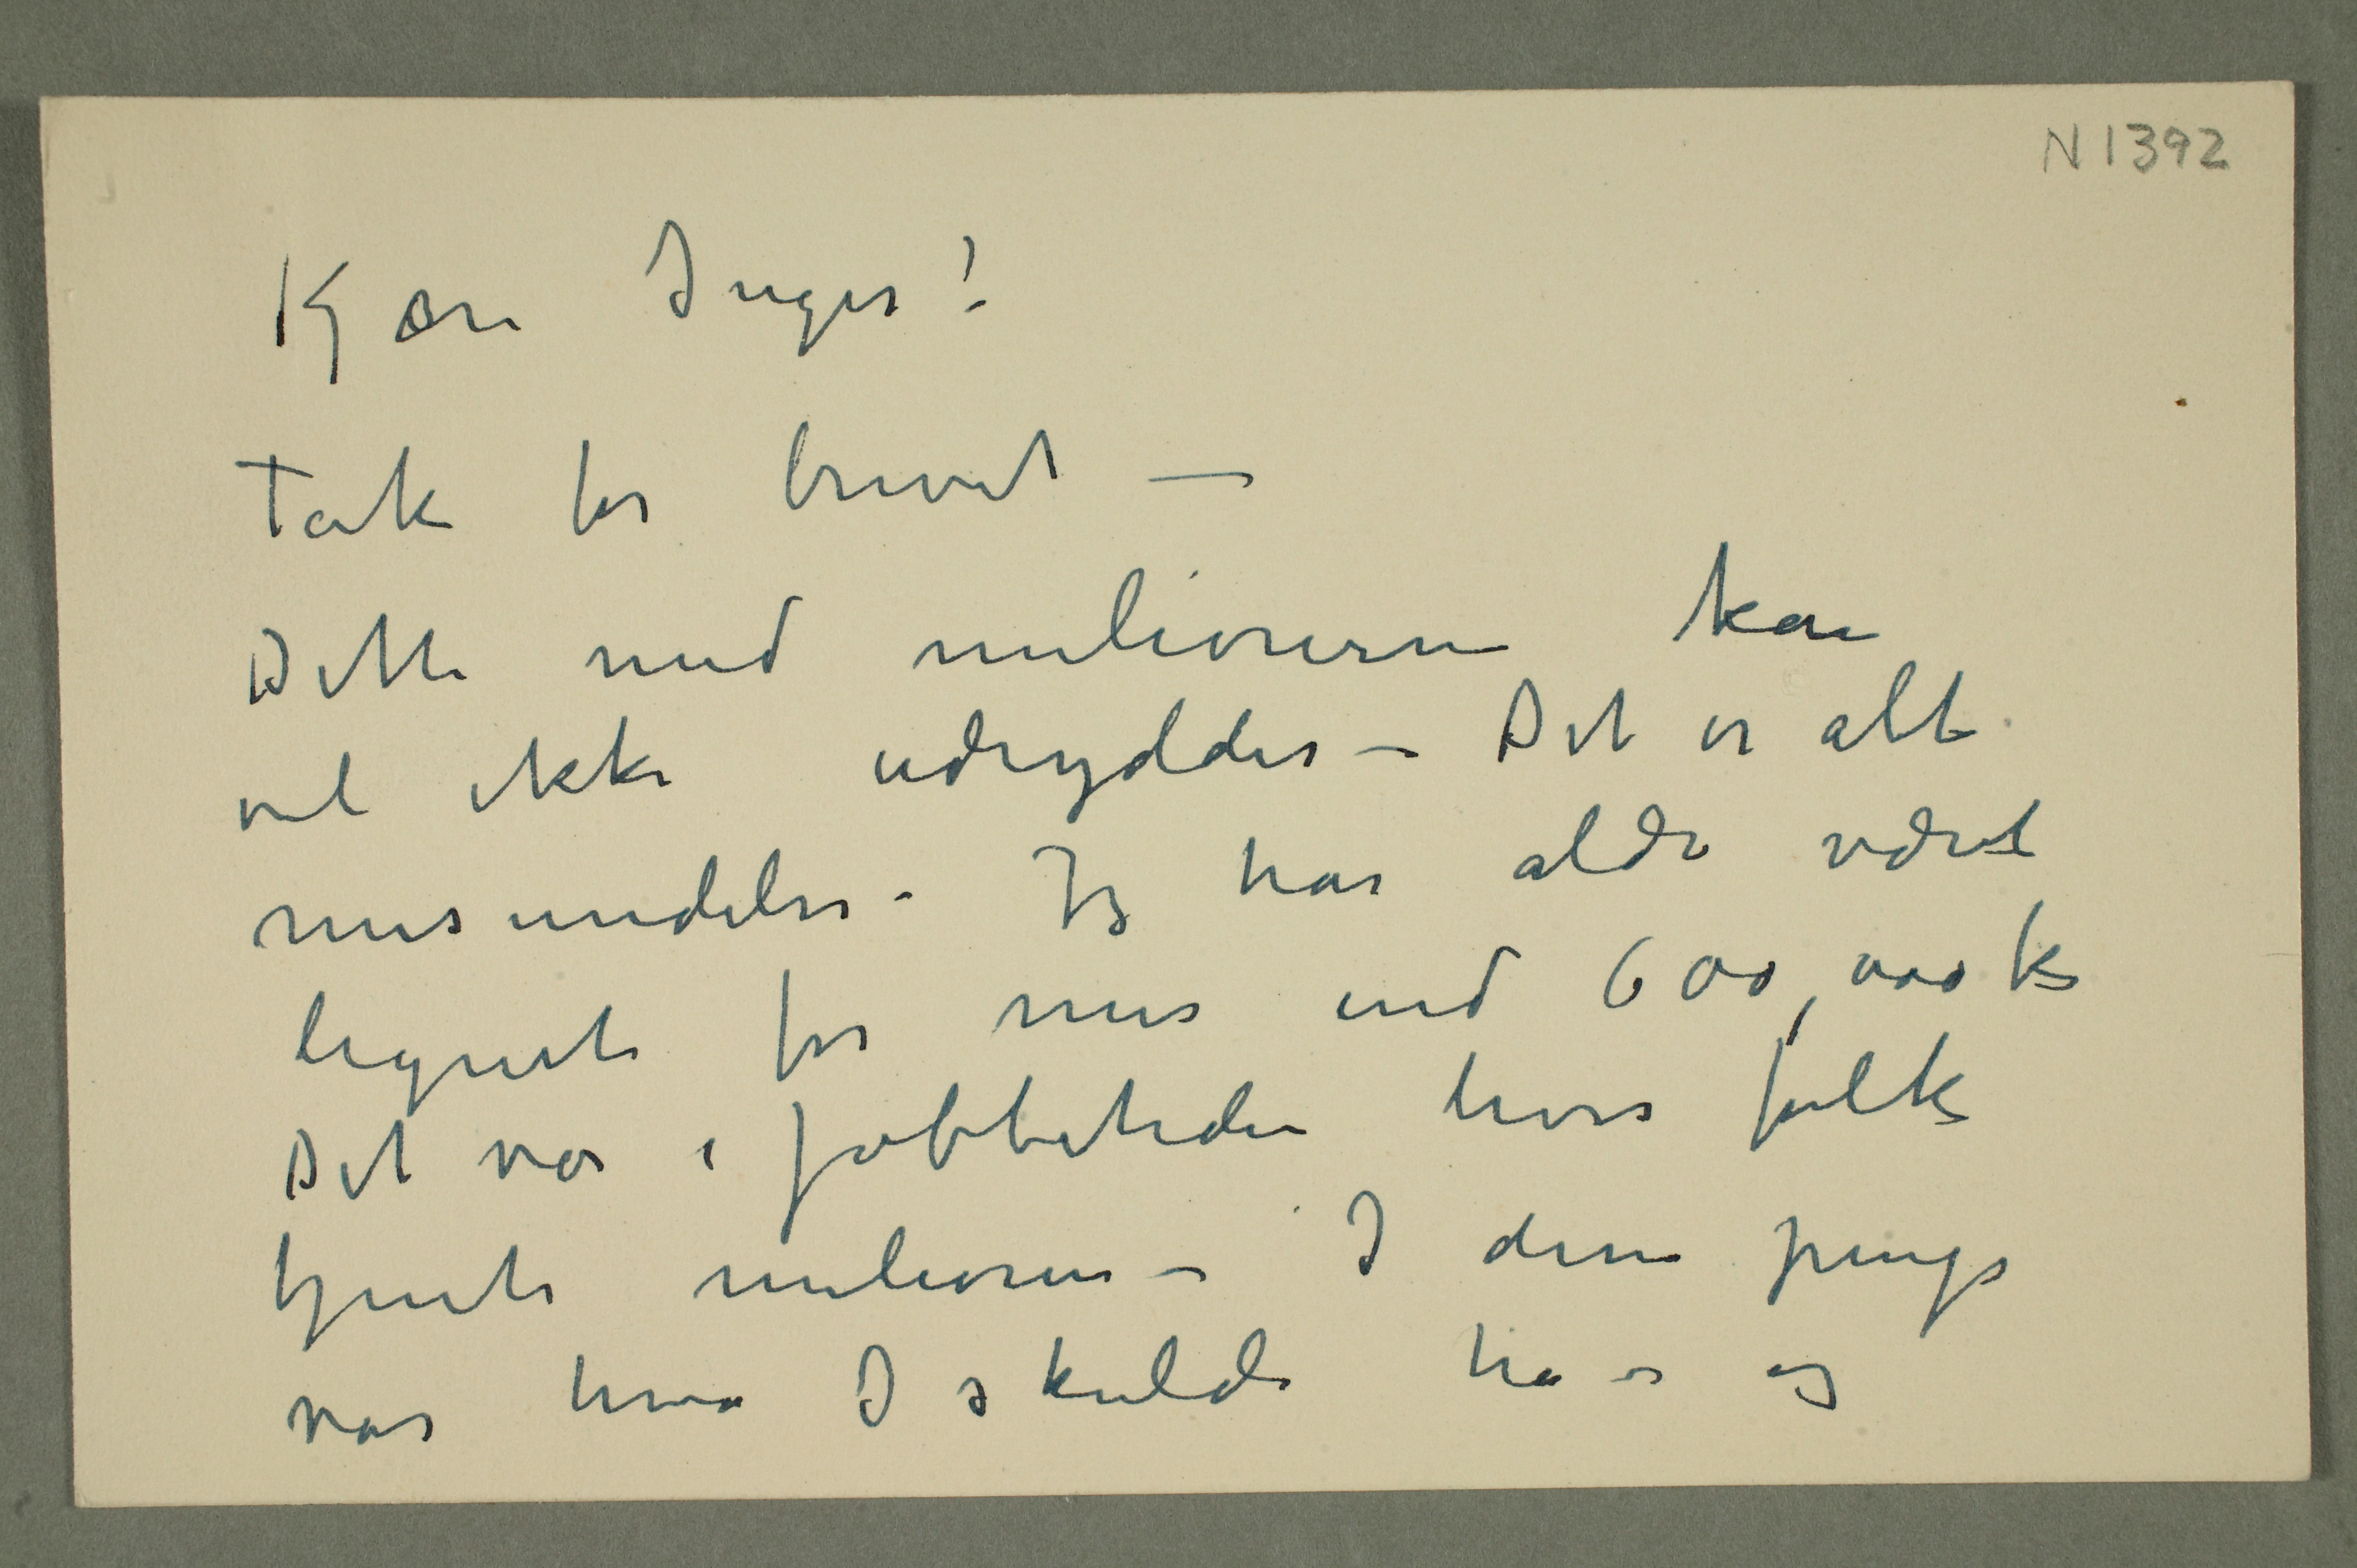 N 1392
Kjære Inger!
Tak for brevet –
Dette med milionerne kan
vel ikke udryddes – Det er alt
misundelse. – Jeg har aldri været
lignet for mer end 600,000 k
Det var i jobbetiden hvor folk
tjente milioner – I disse penge
var hvad I skulde ha – og